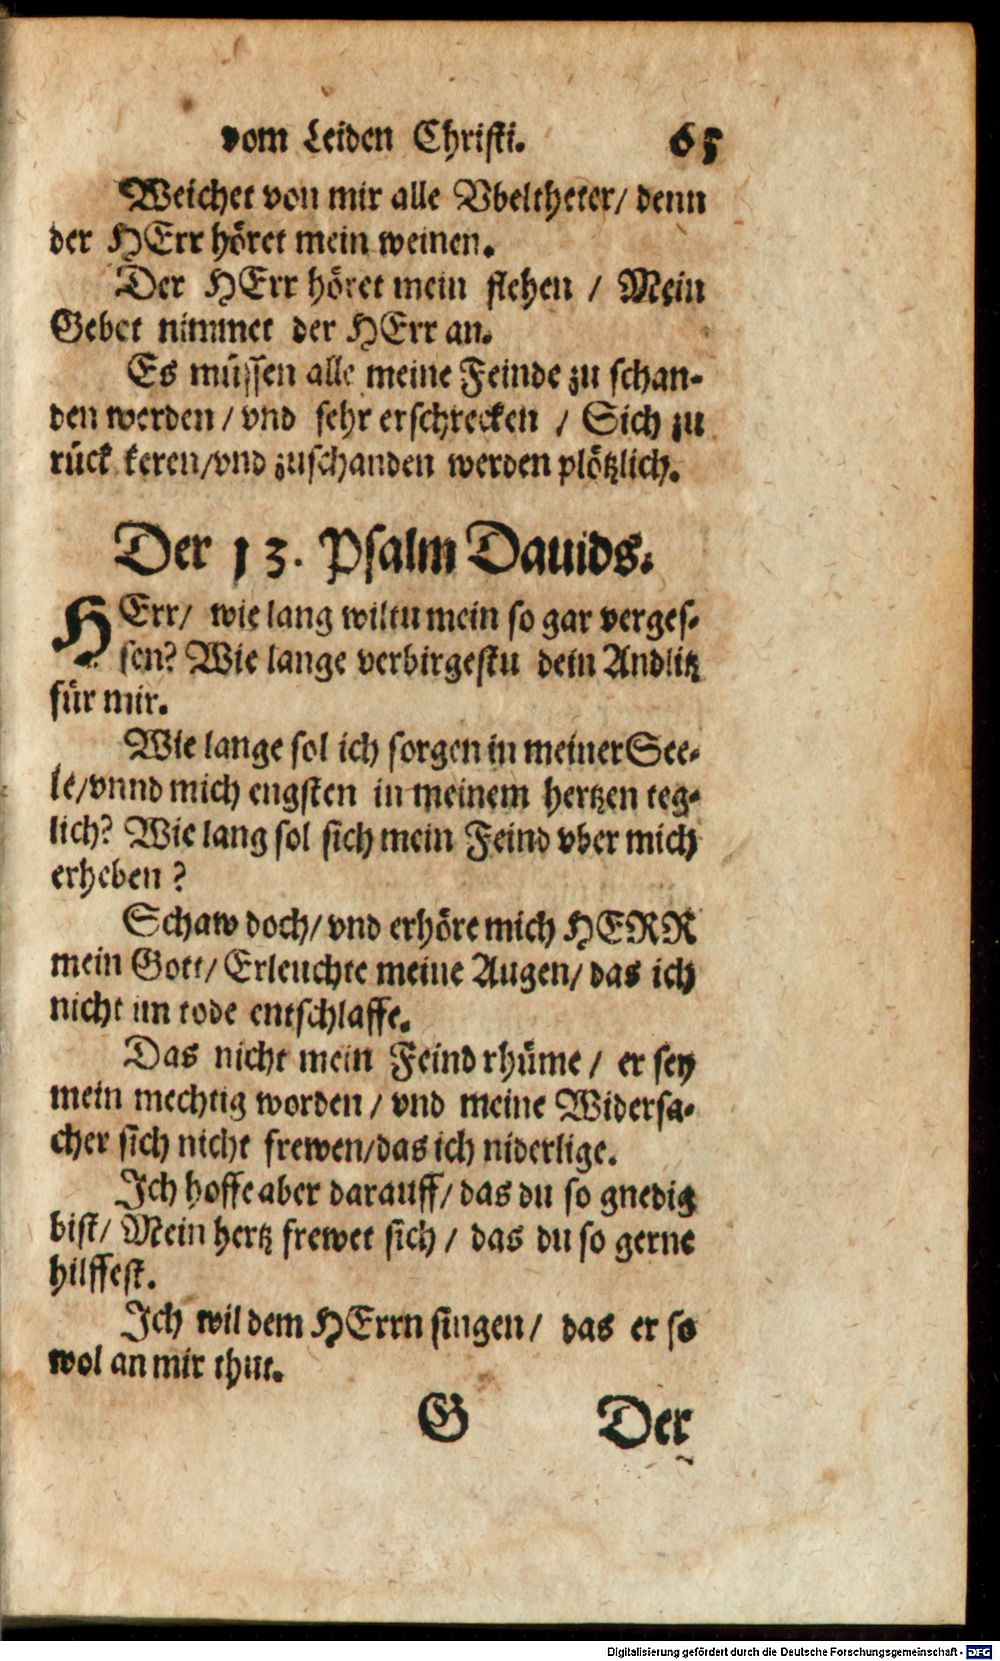 vom Leiden Christi. 65
Weichet von mir alle Vbeltheter/ denn
der HErr höret mein weinen.
Der HErr höret mein flehen / Mein
Gebet nimmet der HErr an.
Es müssen alle meine Feinde zu schan-
den werden / vnd sehr erschrecken / Sich zu
rück keren/vnd zuschanden werden plötzlich.
Der 13. Psalm Dauids.
HErr/ wie lang wiltu mein so gar verges-
sen? Wie lange verbirgestu dein Andlitz
für mir.
Wie lange sol ich sorgen in meiner See-
le/vnnd mich engsten in meinem hertzen teg-
lich? Wie lang sol sich mein Feind vber mich
erheben ?
Schaw doch/ vnd erhöre mich HERR
mein Gott/ Erleuchte meine Augen/ das ich
nicht im tode entschlaffe.
Das nicht mein Feind rhüme / er sey
mein mechtig worden / vnd meine Widersa-
cher sich nicht frewen/das ich niderlige.
Ich hoffe aber darauff/ das du so gnedig
bist/ Mein hertz frewet sich / das du so gerne
hilffest.
Ich wil dem HErrn singen / das er so
wol an mir thut.
G Der
Digitalisierung gefördert durch die Deutsche Forschungsgemeinschaft - DFG